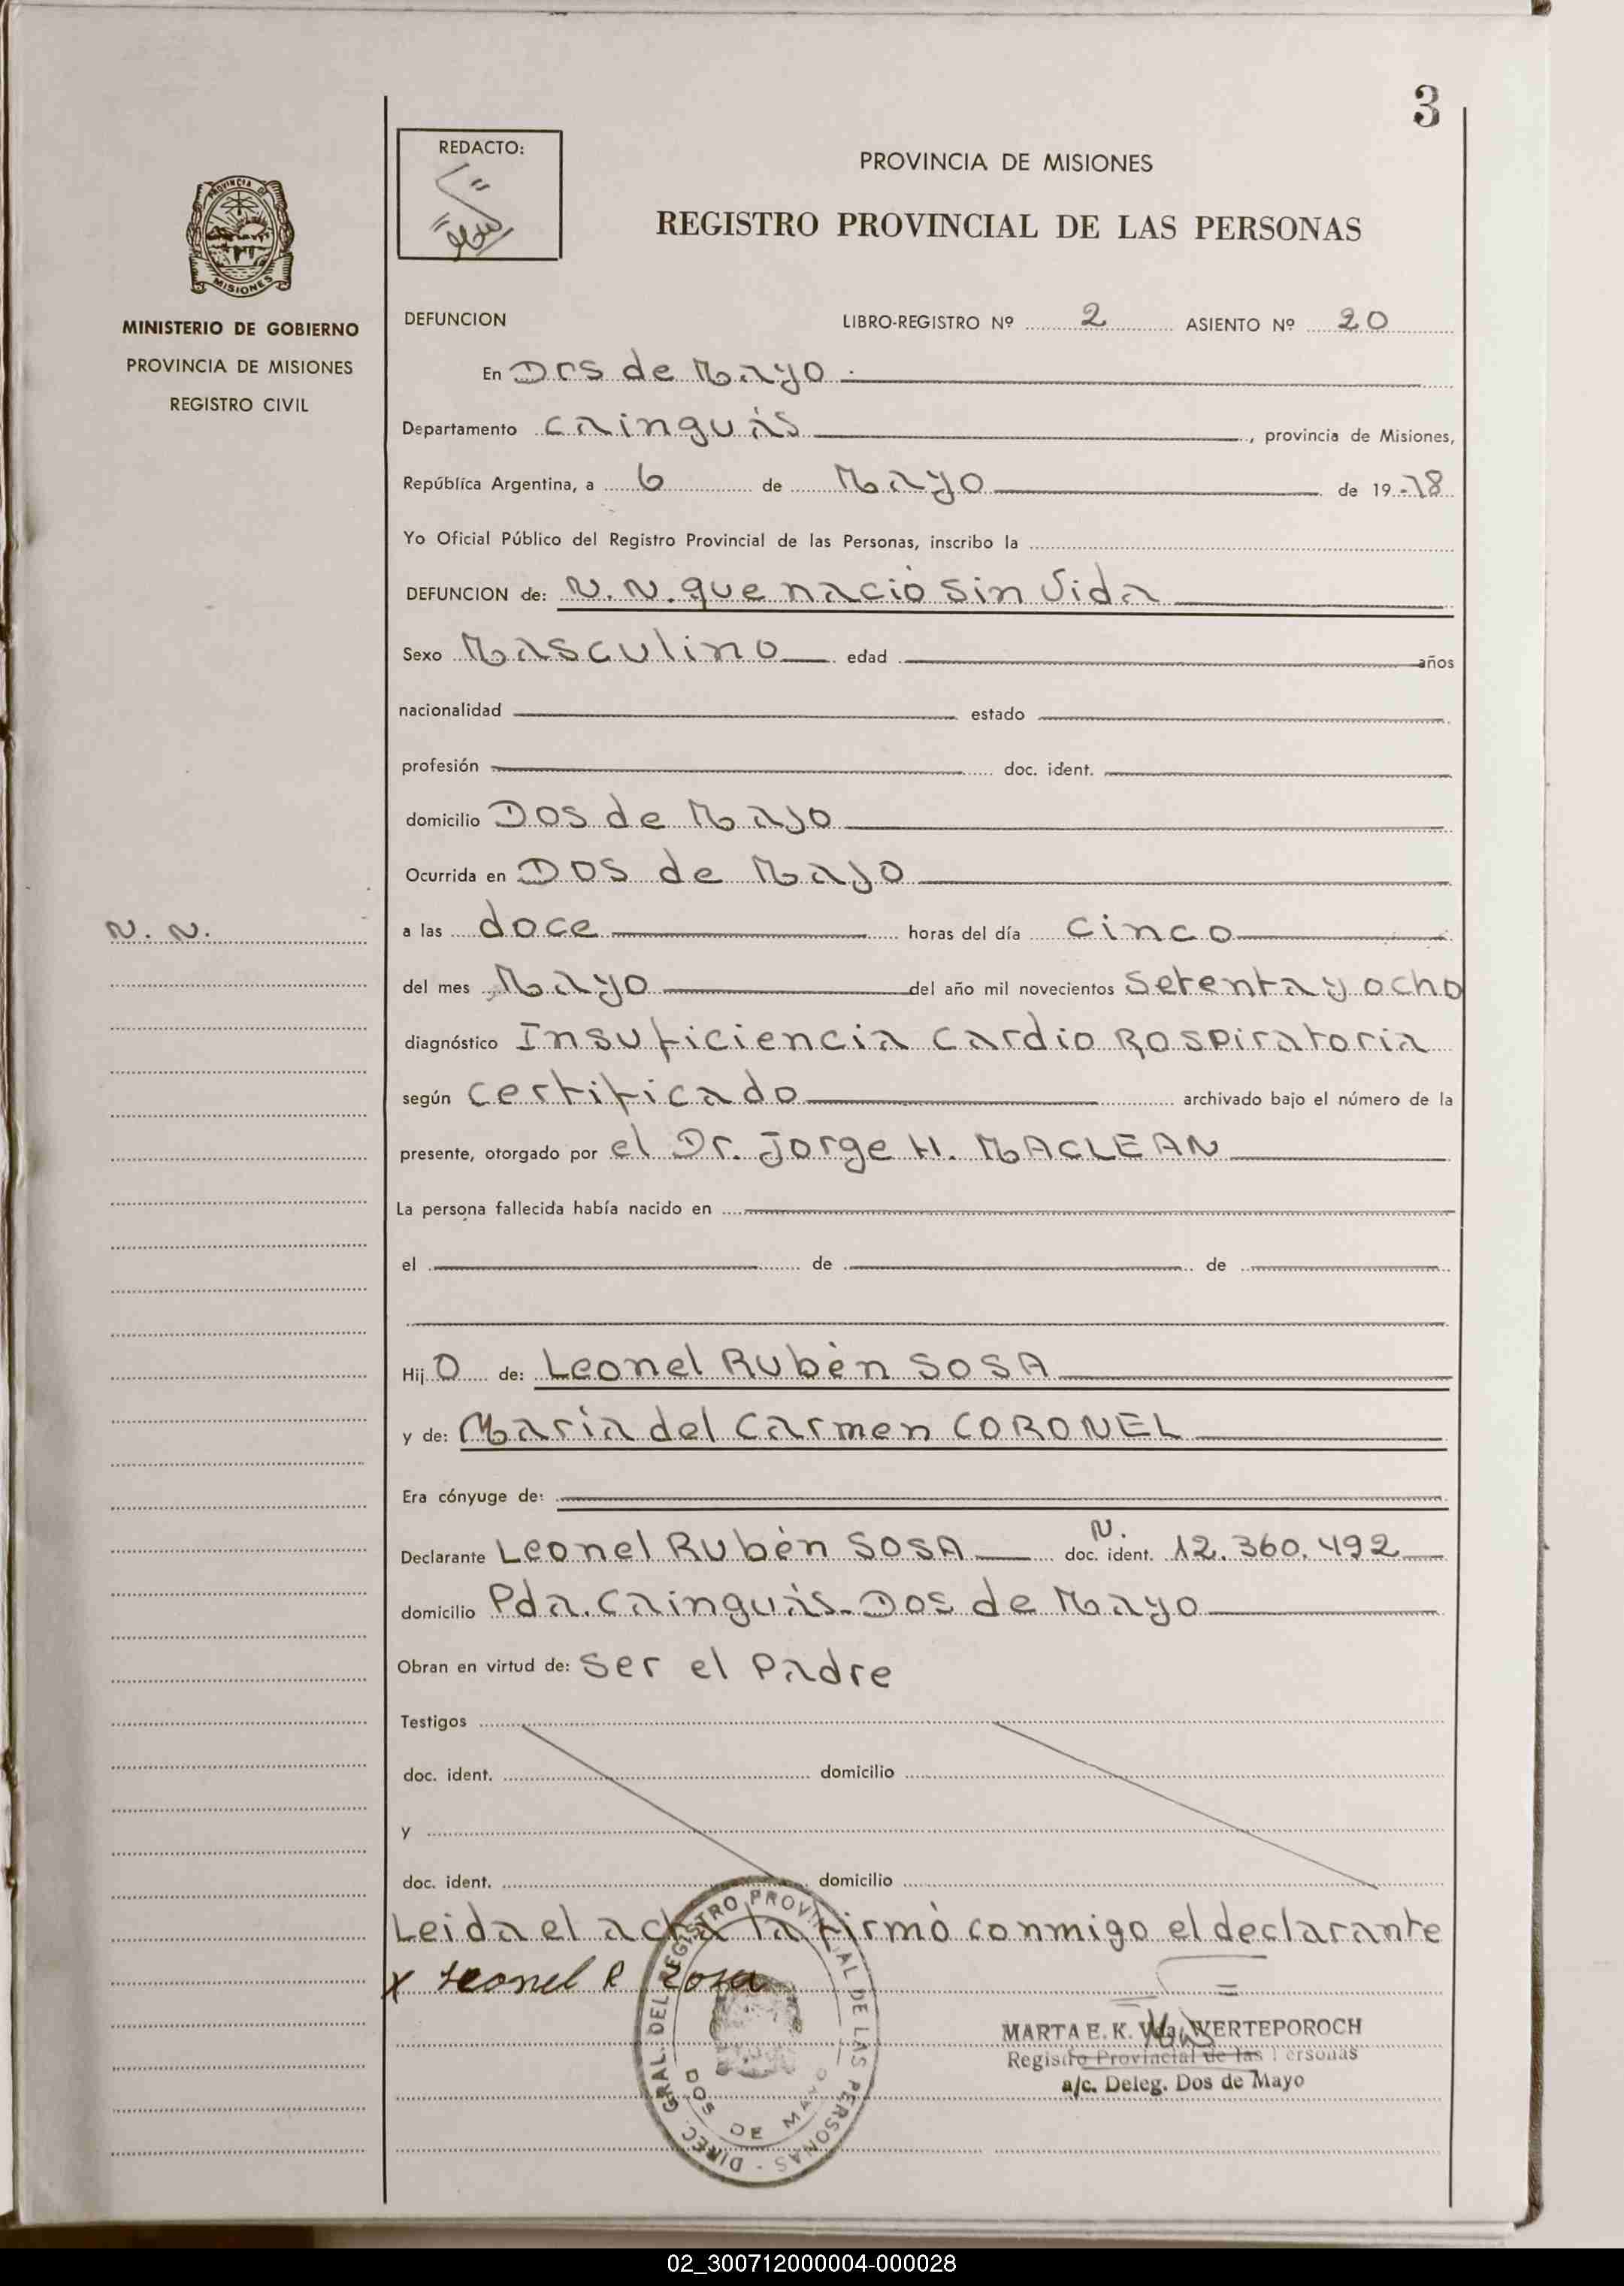 3
REDACTO:
PROVINCIA DE MISIONES
REGISTRO PROVINCIAL DE LAS PERSONAS
PROVINCIA DE
MISIONES
MINISTERIO DE GOBIERNO
PROVINCIA DE MISIONES
REGISTRO CIVIL
DEFUNCION LIBRO-REGISTRO Nº 2 ASIENTO Nº 20
En Dos de Mayo.
Departamento Cainguás, provincia de Misiones,
República Argentina, a 6 de Mayo de 19-78
Yo Oficial Público del Registro Provincial de las Personas, inscribo la
DEFUNCION de: N.N. que nació sin vida
Sexo Masculino edad años
nacionalidad estado
profesión doc. ident.
domicilio Dos de Mayo
Ocurrida en Dos de Mayo
N. N.
a las doce horas del día cinco
del mes Mayo del año mil novecientos setenta y ocho
diagnóstico Insuficiencia Cardio Rospiratoria
según certificado archivado bajo el número de la
presente, otorgado por el Dr. Jorge H. MACLEAN
La persona fallecida había nacido en
el de de
Hij O de: Leonel Rubén SOSA
y de: Maria del Carmen CORONEL
Era cónyuge de:
Declarante Leonel Rubén SOSA N. doc. ident. 12.360.492
domicilio Pda. Cainguás-Dos de Mayo
Obran en virtud de: ser el Padre
Testigos
doc. ident. domicilio
y
doc. ident. domicilio
Leida el acta la firmó conmigo el declarante
x Leonel R Sosa
DIREC. GRAL. DEL REGISTRO PROVINCIAL DE LAS PERSONAS -
DOS DE MAYO
MARTA E. K. Vda. WERTEPOROCH
Registro Provincial de las Personas
a/c. Deleg. Dos de Mayo
02_300712000004-000028